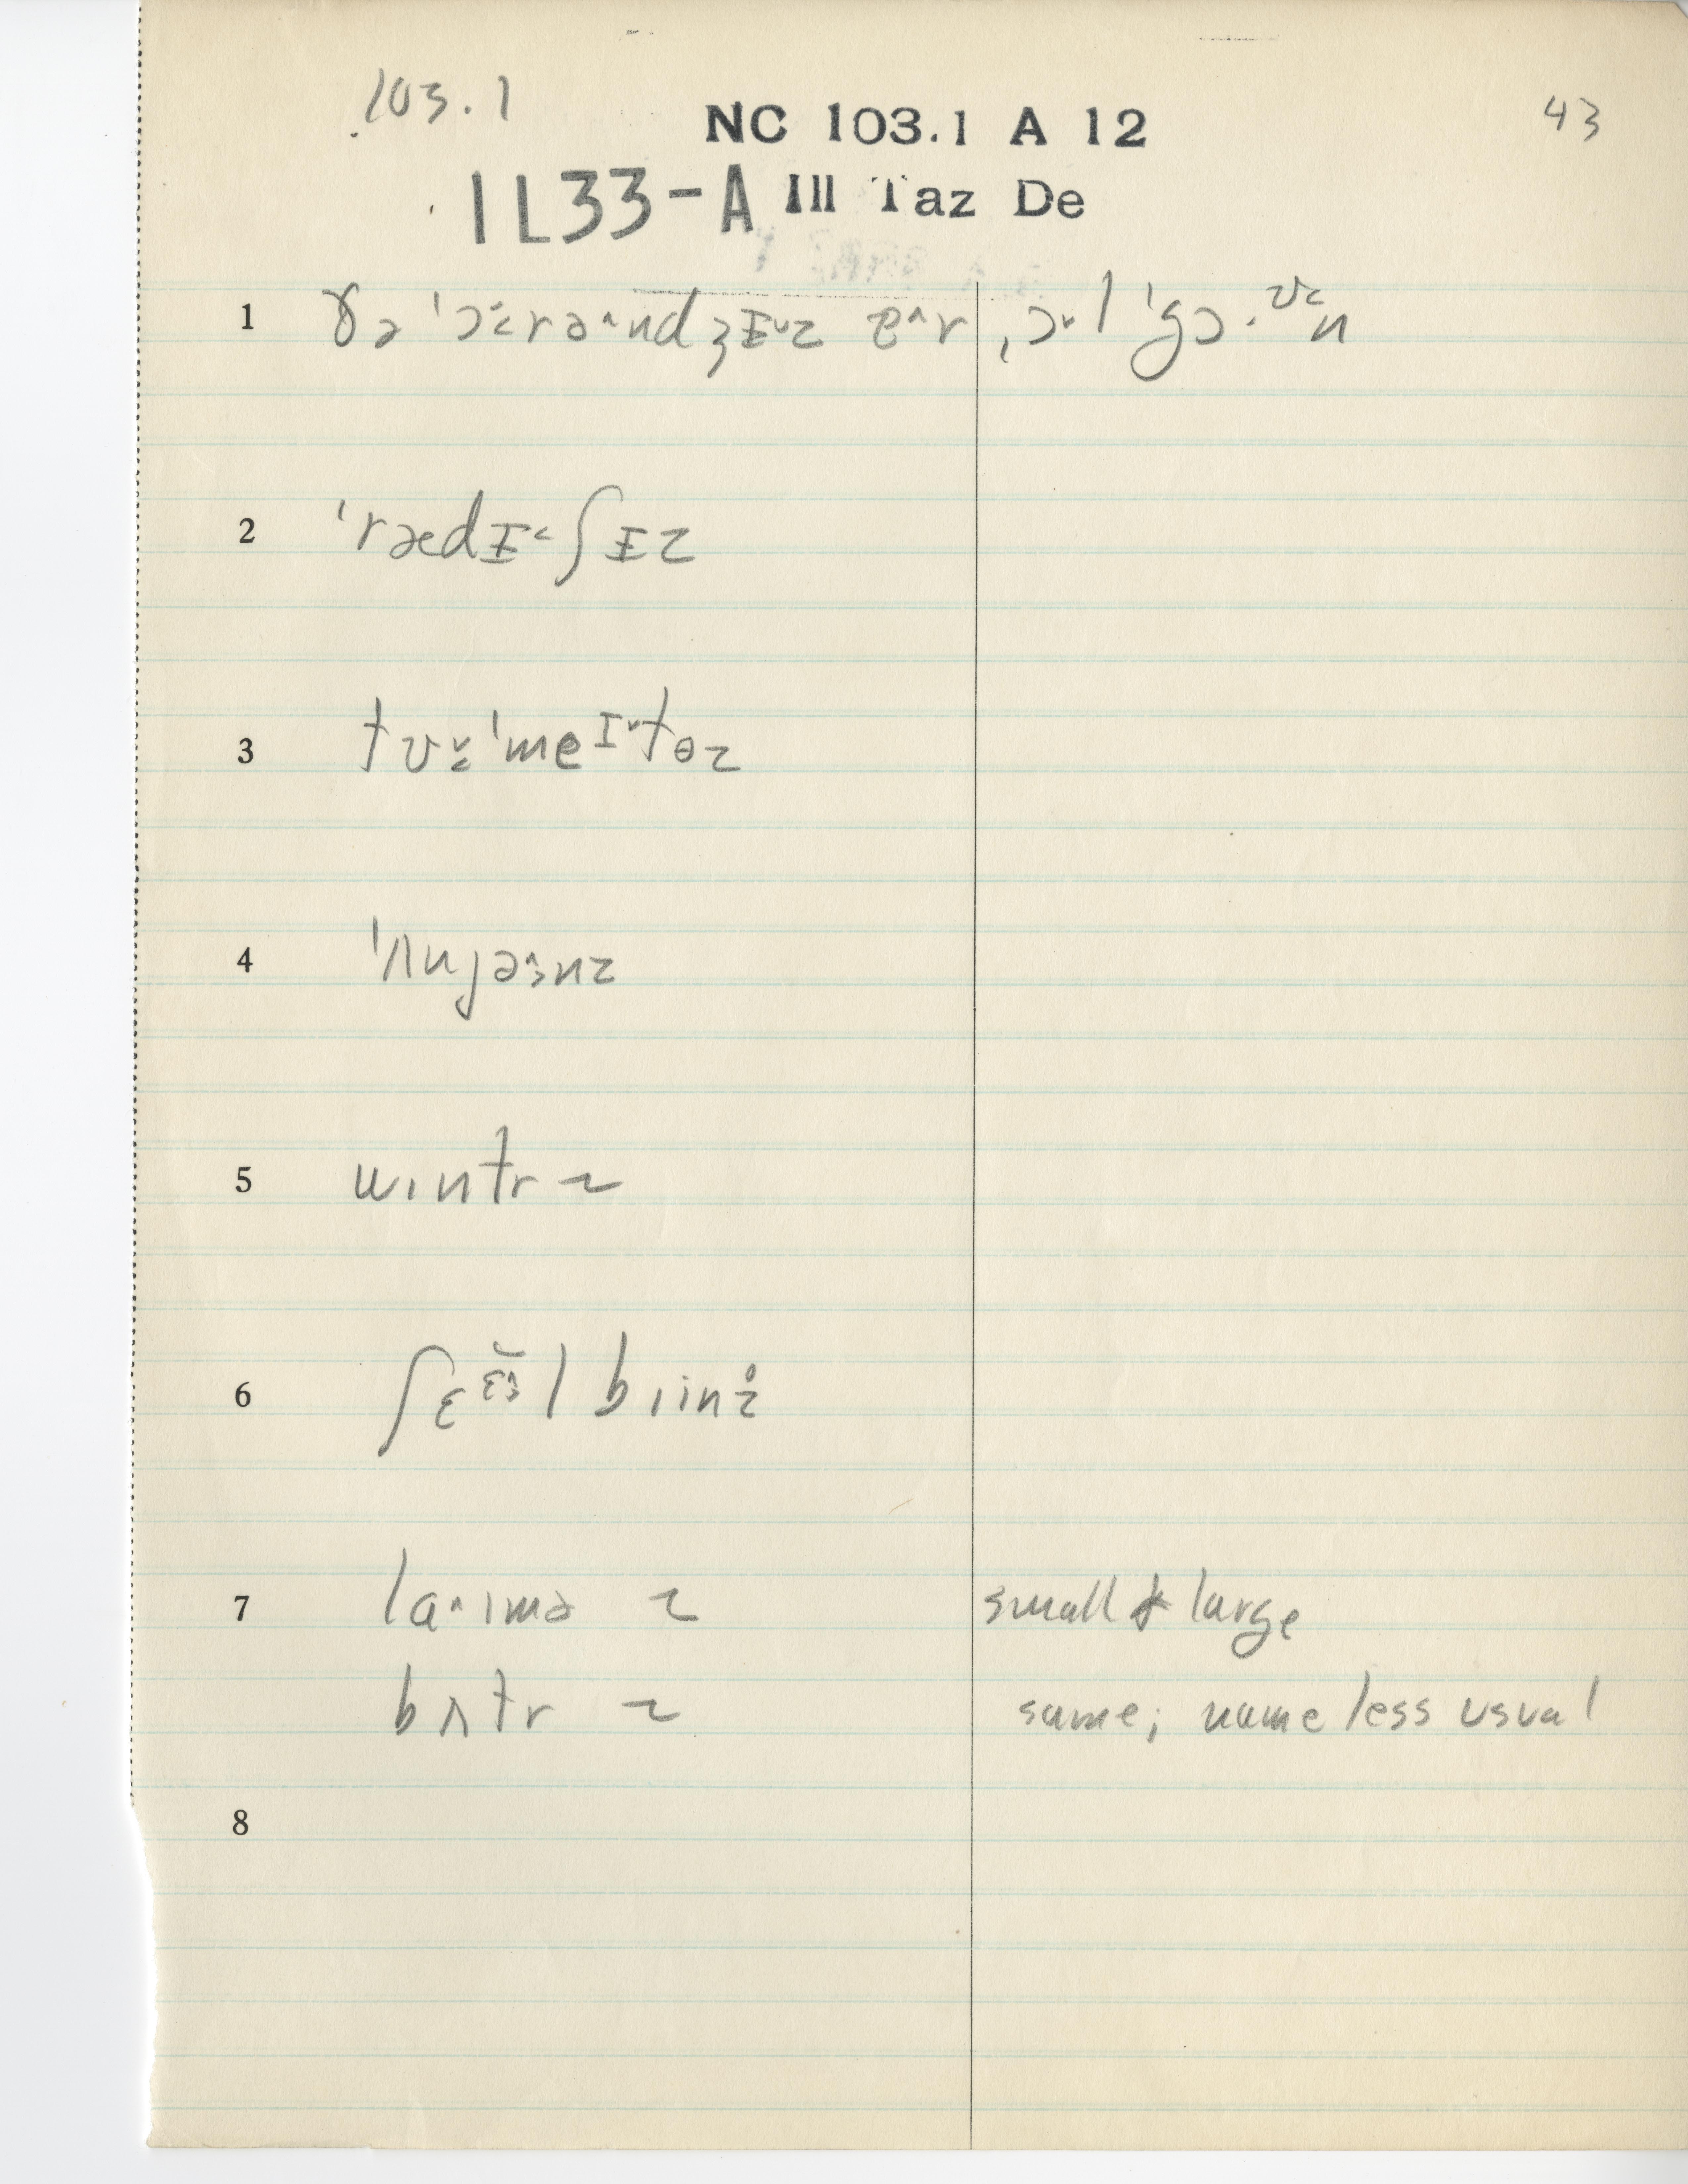 103.1
NC 103.1 A 12
43
1L33-A Ill Taz De
1 ðə ˈɔ˂ːrə^ndʒɪ˅z ɐ^r ˌɔ˅l ˈgɔ·ʊ˂n
2 ˈrædɪ˂ʃɪz
3 tʊ˅ːˈmeɪ˅tɵz
4 ˈʌnjə^:nz
5 wɪntr z
6 ʃɛɛ̯^l bɪinz̥
7 la^·ɪmə z small & large
bʌtr z same; name less usual
8